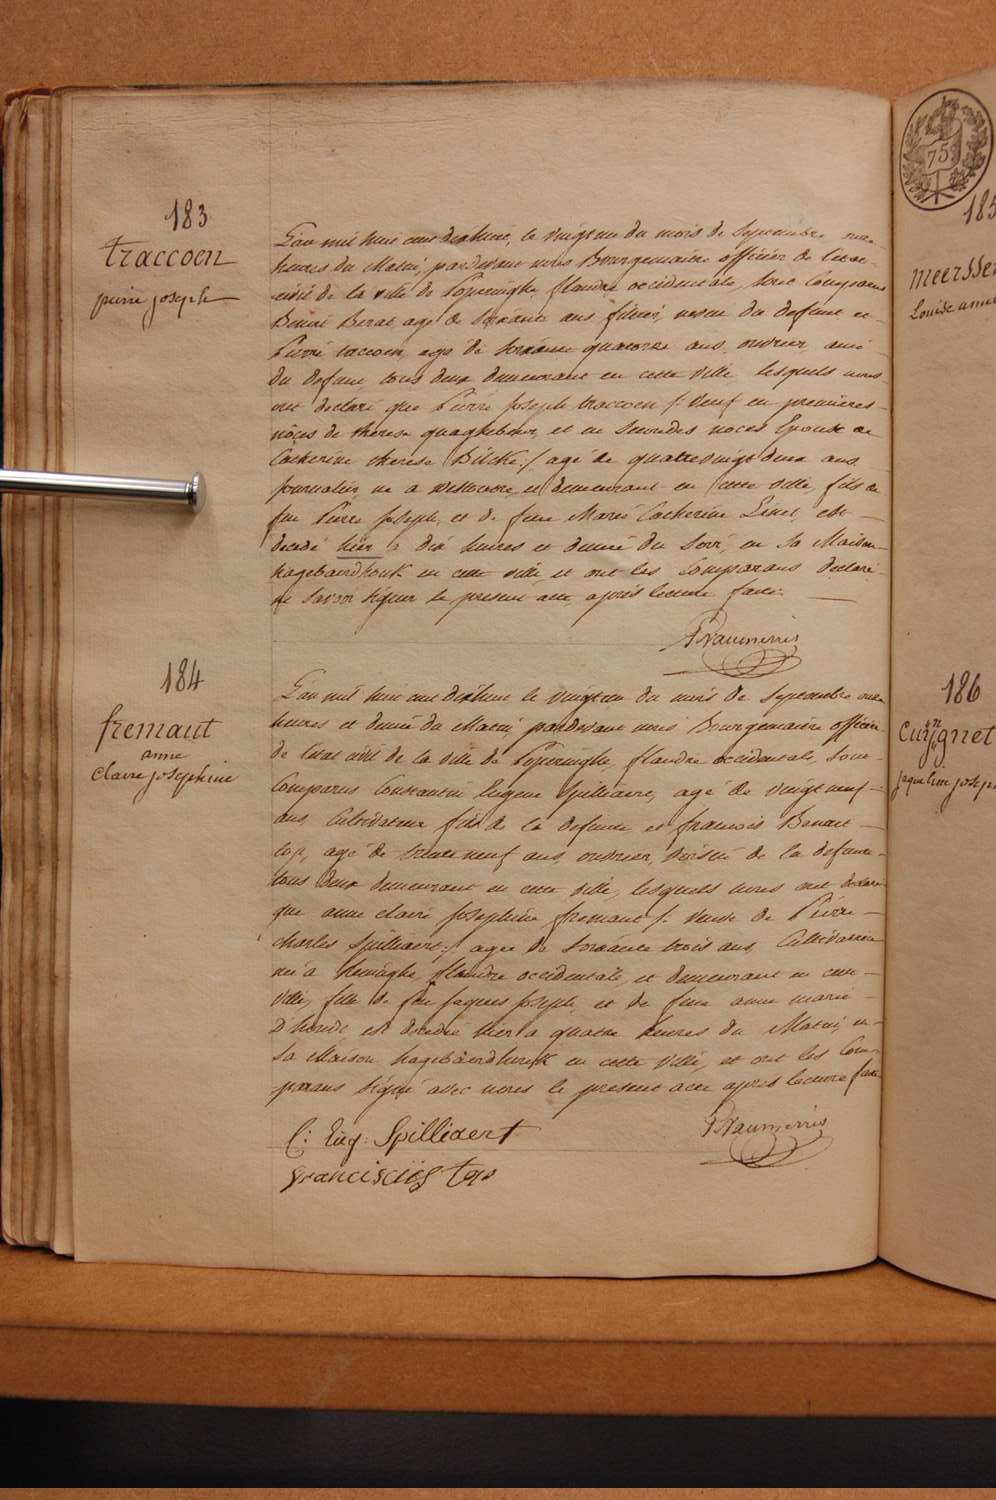 183
traccoen
pierre joseph
L'an mil huit cent dixhuit, le vingt un du mois de Septembre onze
heures du Matin, pardevant nous Bourgemaitre officier de l'etat
civil de la ville de Poperinghe, flandre occidentale, sont Comparus
Benoit Berat, agé de soixante ans, neveu du defunt et
Pierre traccoen, agé de soixante quatorze ans, ouvrier, ami
du defunt tous deux demeurant en cette ville lesquels nous
ont declaré que Pierre Joseph traccoen /: veuf en premieres
nôces de therese quaghebeur, et en Secondes noces Epoux de
Catherine therese :/ agé de quatrevingt deux ans
journalier, né a Westoutre, et demeurant en cette ville, fils de
feu Pierre Joseph, et de feue Marie Catherine est
decedé hier a dix heures et demie du Soir, en Sa Maison
hagebaerdhouk en cette ville et ont les Comparans declaré
ne Savoir Signer le present acte, après lecture faite.
184
fremaut
anne
claire josephine
L'an mil huit cent dixhuit le vingt un du mois de Septembre onze
heures et demie du Matin, pardevant nous Bourgemaitre officier
de l'etat civil de la ville de Poperinghe, flandre occidentale, Sont
Comparus Constantin Eugene Spilliaert, agé de vingt neuf
ans Cultivateur fils de la defunte et francois Benoit
top, agé de trente neuf ans, ouvrier, voisin de la defunte
tous deux demeurant en cette ville, lesquels nous ont declaré
que anne claire Josephine fremaut /: veuve de Pierre
charles Spilliaert :/ agée de soixante trois ans, Cultivatrice
née a flandre occidentale, et demeurant en cette
ville, fille de feu Jacques Joseph, et de feue anne marie
D'hondt est decedée hier a quatre heures du Matin, en
Sa Maison hagebaerdhouk en cette ville, et ont les Com-
parans Signé avec nous le present acte après lecture faite
C: Eug: Spilliaert
franciscus top
75
185
meersse
Louise anne
186
cuignet
jaqueline joseph